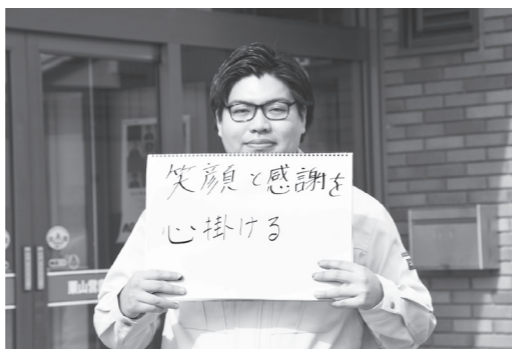 笑顔と感謝を
心掛ける